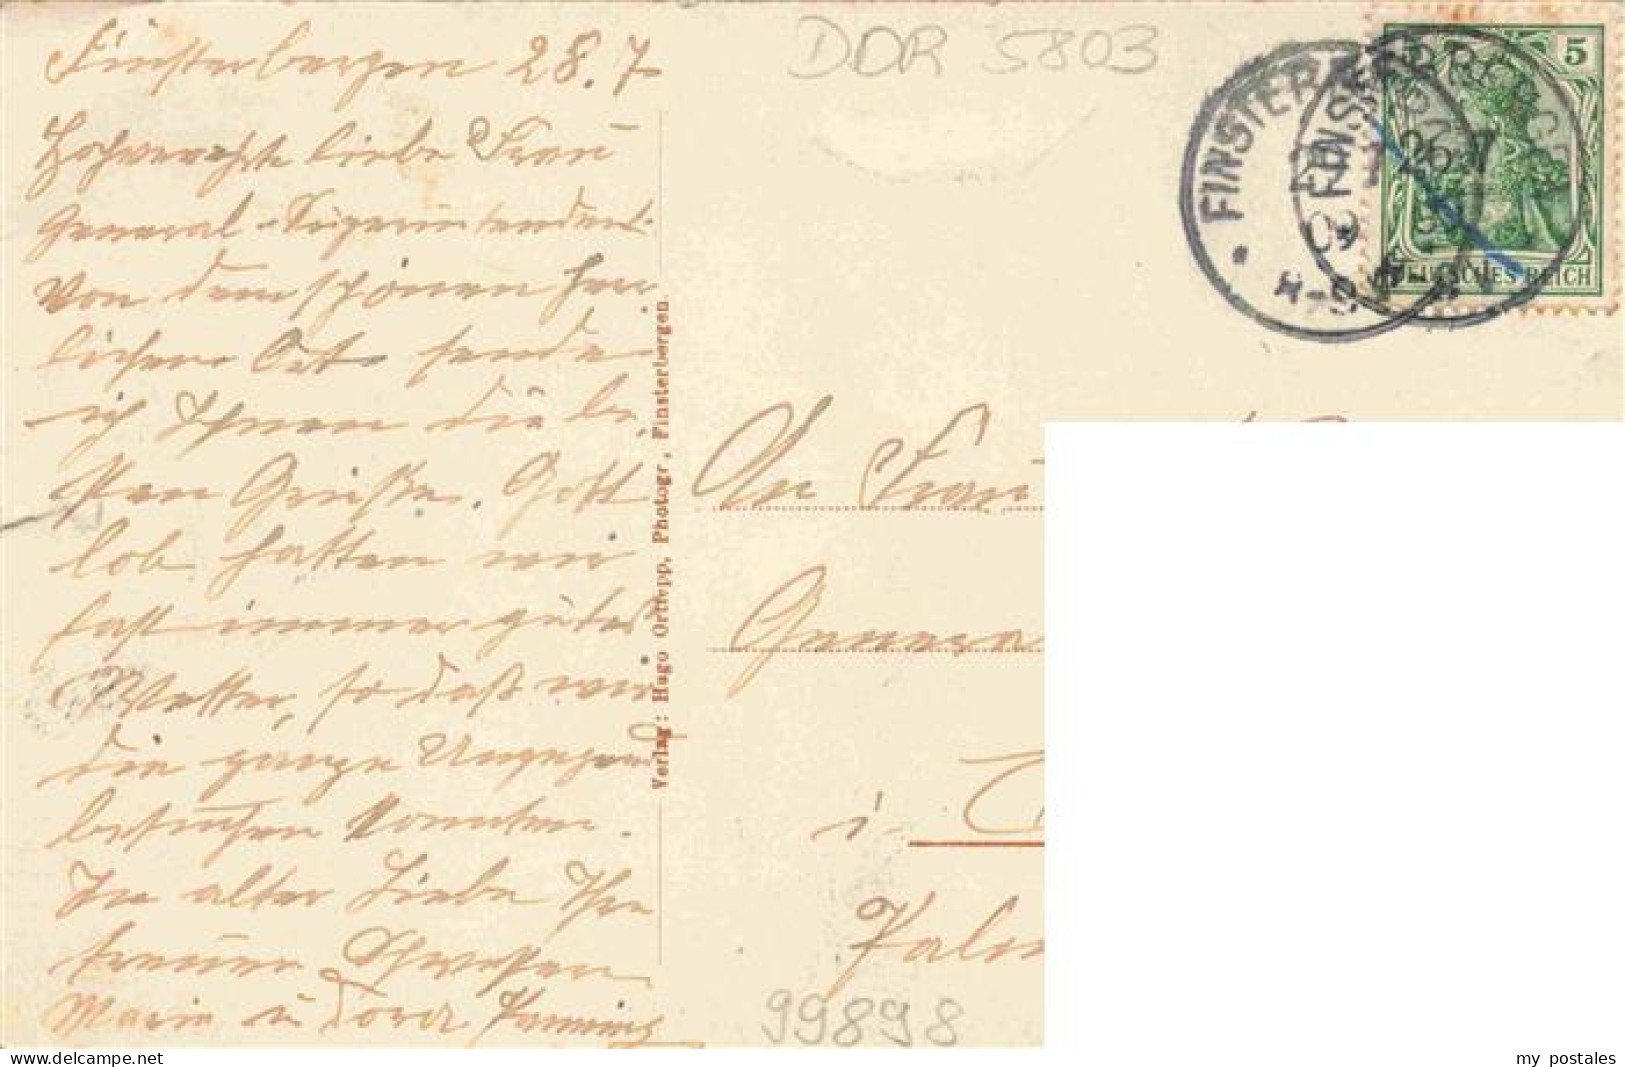 Finsterbergen 28.7
Hochverehrte liebe Frau
General-Superintendent.
Von dem schönen herr
lichen Ort sende
ich Ihnen die be.
sten Grüße. Gott
lob hatten wir
fast immer gutes
Wetter, so daß wir
die ganze Umgegend
besuchen konnten.
In alter Liebe Ihre
treuen Schwestern
Marie u. Dora
Verlag: Hugo Ortlepp, Photogr., Finsterbergen.
DDR 5803
FINSTERBERGEN
5
DEUTSCHES REICH
An Frau
Genera
i.
99898
my postales